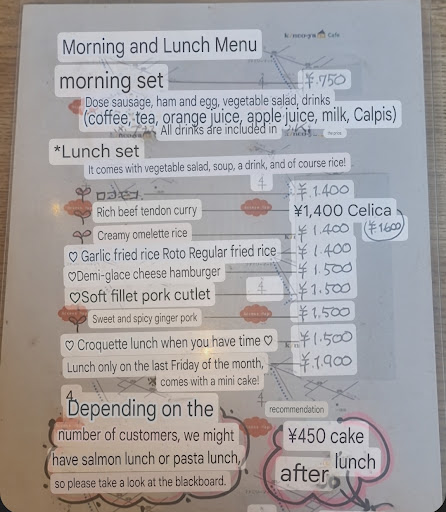 Morning and Lunch Menu
morning set ¥.750
Dose sausage, ham and egg, vegetable salad, drinks
(coffee, tea, orange juice, apple juice, milk, Calpis)
All drinks are included in
*Lunch set
It comes with vegetable salad, soup, a drink, and of course rice!
¥1.400
Rich beef tendon curry ¥1,400 Celica
Creamy omelette rice ¥1.400 (¥1600)
♡ Garlic fried rice Roto Regular fried rice ¥1.400
♡Demi-glace cheese hamburger ¥1.500
♡Soft fillet pork cutlet ¥1.500
Sweet and spicy ginger pork ¥1.500
♡ Croquette lunch when you have time ♡ ¥1.500
Lunch only on the last Friday of the month, ¥1.900
comes with a mini cake!
Depending on the
number of customers, we might
have salmon lunch or pasta lunch,
so please take a look at the blackboard.
recommendation
¥450 cake
after lunch